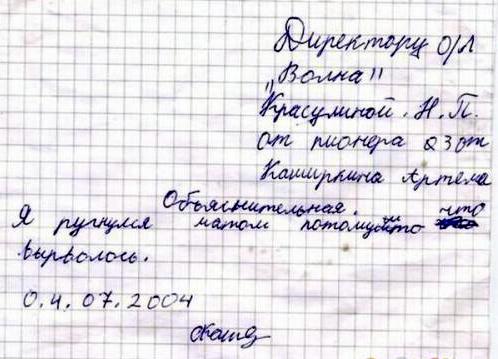 Директору о/л
"Волна"
Красулиной. Н. П.
от пионера 23 от
Каширкина Артема
Объяснительная.
Я ругнулся матом потому что
вырволось.
0.4.07.2004
Каш